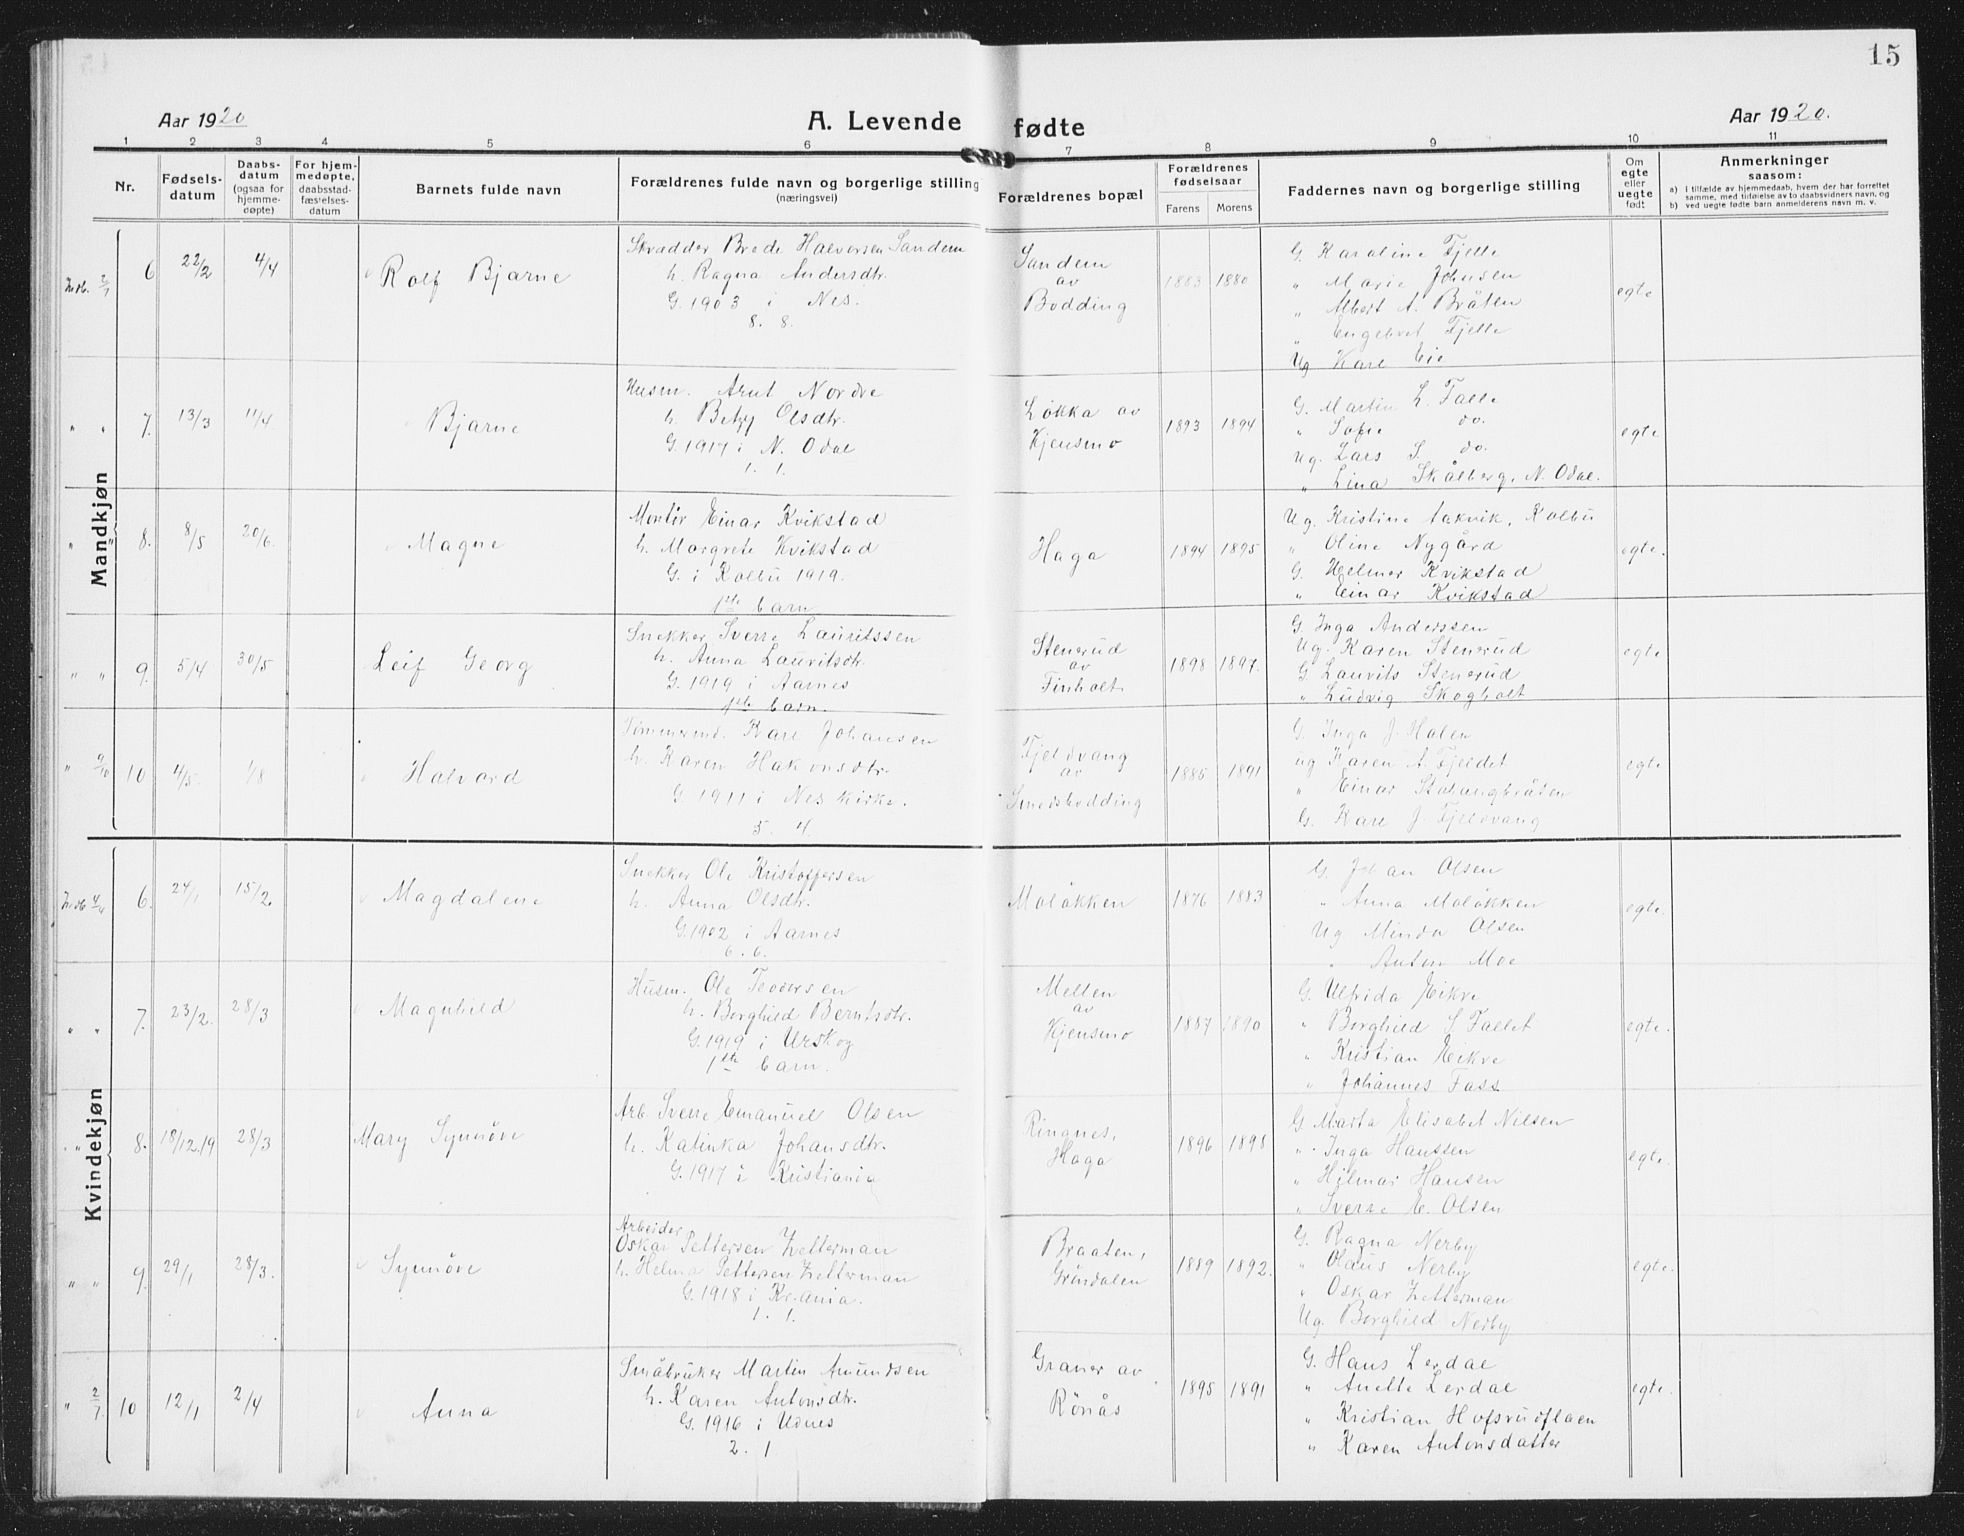 15
Aar 1920
A. Levende fødte
Aar 1920.
1 2 3 4 5 6 7 8 9 10 11
Nr.
Fødsels-
datum
Daabs-
datum
(ogsaa for
hjemme-
døpte)
For hjem-
medøpte,
daabsstad-
fæstelses-
datum
Barnets fulde navn
Forældrenes fulde navn og borgerlige stilling
(næringsvei)
Forældrenes bopæl
Forældrenes
fødselsaar
Farens Morens
Faddernes navn og borgerlige stilling
Om
egte
eller
uegte
født
Anmerkninger
saasom:
a) i tilfælde av hjemmedaab, hvem der har forrettet
samme, med tilføielse av to daabsvidners navn, og
b) ved uegte fødte barn anmelderens navn m. v.
Mandkjøn
6 22/2 4/4 Rolf Bjarne
Skrædder Brede Halvorsen Sandem
h. Ragna Andersdtr.
G. 1903 i Nes.
8. 8.
Sandem
av
Bodding
1883 1880
G. Karoline Fjelle
„ Marie Johnsen
„ Albert A. Bråten
„ Engebret Fjelle
Ug Kare Eie
egte
„ „ 7. 13/3 11/4 Bjarne
Husm. Arut Nordre
h. Betzy Olsdtr.
G. 1917 i N. Odal
1. 1.
Løkka av
Kjensmo
1893 1894
G. Martin L. Falle
„ Sofie do.
Ug. Lars S. do.
„ Lina Skålberg, N. Odal.
egte
„ „ 8. 8/5 20/6. Magne
Montør Einar Kvikstad
h. Margrete Kvikstad
G. i Kolbu 1919.
1ste barn
Haga
1894 1895
Ug. Kristine Aakvik, Kolbu
„ Oline Nygård
G. Helmer Kvikstad
„ Einar Kvikstad
egte.
„ „ 9. 5/4 30/5 Leif Georg
Snekker Sverre Lauritssen
h. Anna Lauritsdtr.
G. 1919 i Aarnes
1ste barn.
Stenerud
av
Finholt
1898 1897.
G Inga Anderssen
Ug. Karen Stenerud
G. Laurits Stenerud
„ Ludvig Skogholt
egte
„ 9/10 10 4/5. 1/8 Halvard
Tømmermd. Kare Johansen
h. Karen Hakonsdtr.
G. 1911 i Nes kirke.
5. 4.
Fjeldvang
av
Smedsbodding
1885 1891
G. Inga J. Holen
ug Karen A. Fjeldet
„ Einar Stolangbråten
G. Kare J. Fjeldvang
egte
Kvindekjøn
6. 24/1 15/2. Magdalene
Snekker Ole Kristoffersen
h. Anna Olsdtr.
G. 1902 i Aarnes
6. 6.
Moløkken
1876 1883
G. Johan Olsen
„ Anna Moløkken
Ug Minda Olsen
„ Anton Moe
egte.
„ „ 7. 23/2. 28/3 Magnhild
Husm. Ole Teodorsen
h. Borghild Berntsdtr.
G. 1919 i Urskog
1ste barn.
Melten
av
Kjensmo
1887 1890
G. Ulfrida Eikve
„ Borghild S. Fallet
„ Kristian Eikve
„ Johannes Fass
egte.
„ „ 8. 18/12.19 28/3 Mary Synnøve
Arb. Sverre Emanuel Olsen
h. Katinka Johansdtr.
G. 1917 i Kristiania
Ringnes,
Haga
1896 1898
G Marta Elisabet Nilsen
„ Inga Hanssen
„ Hilmar Hansen
„ Sverre E. Olsen
egte.
„ „ 9. 29/1 28/3. Synnøve
Arbeider
Oskar Pettersen Zetterman
h. Helma Pettersen Zetterman
G. 1918 i Kr.ania.
1. 1.
Braaten,
Grøndalen
1889 1892.
G. Ragna Nerby
„ Olaus Nerby
„ Oskar Zetterman
Ug. Borghild Nerby
egte.
„ 2/7. 10 12/1 2/4 Anna
Småbruker Martin Amundsen
h. Karen Antonsdtr.
G. 1916 i Udnes
2. 1
Graner av
Rönås
1895 1891
G. Hans Lerdal
„ Anette Lerdal
„ Kristian Hofsrudflaen
„ Karen Antonsdatter
egte.